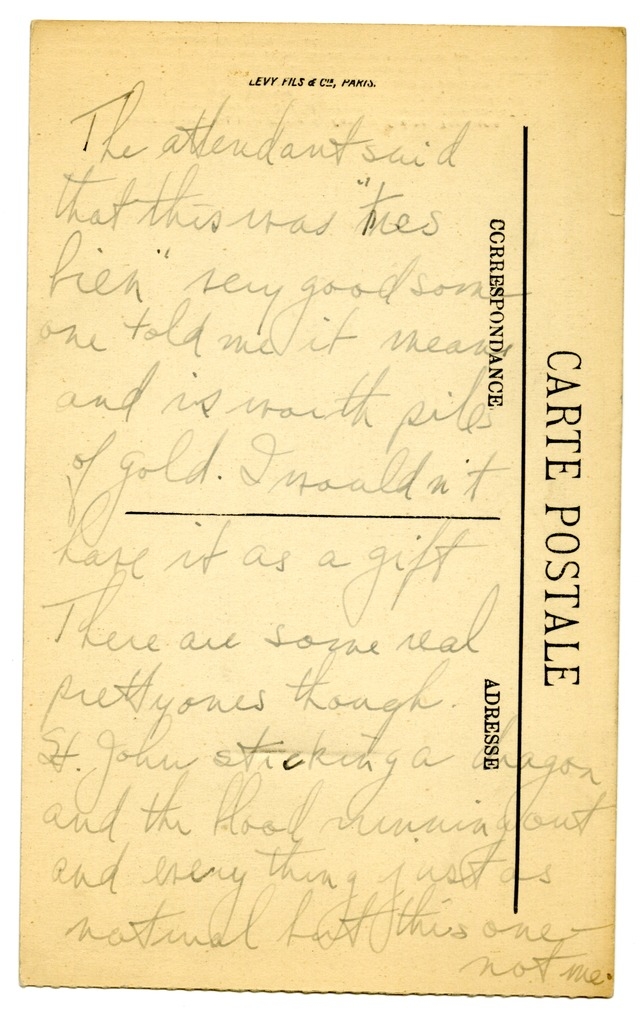 LEVY FILS & Cie, PARIS.
CARTE POSTALE
CORRESPONDANCE
ADRESSE
The attendant said
that this was "tres
bien" very good some-
one told me it means
and is worth piles
of gold. I wouldn't
have it as a gift
There are some real
pretty ones though.
St. John sticking a dragon
and the blood running out
and every thing just as
natural but this one—
not me.